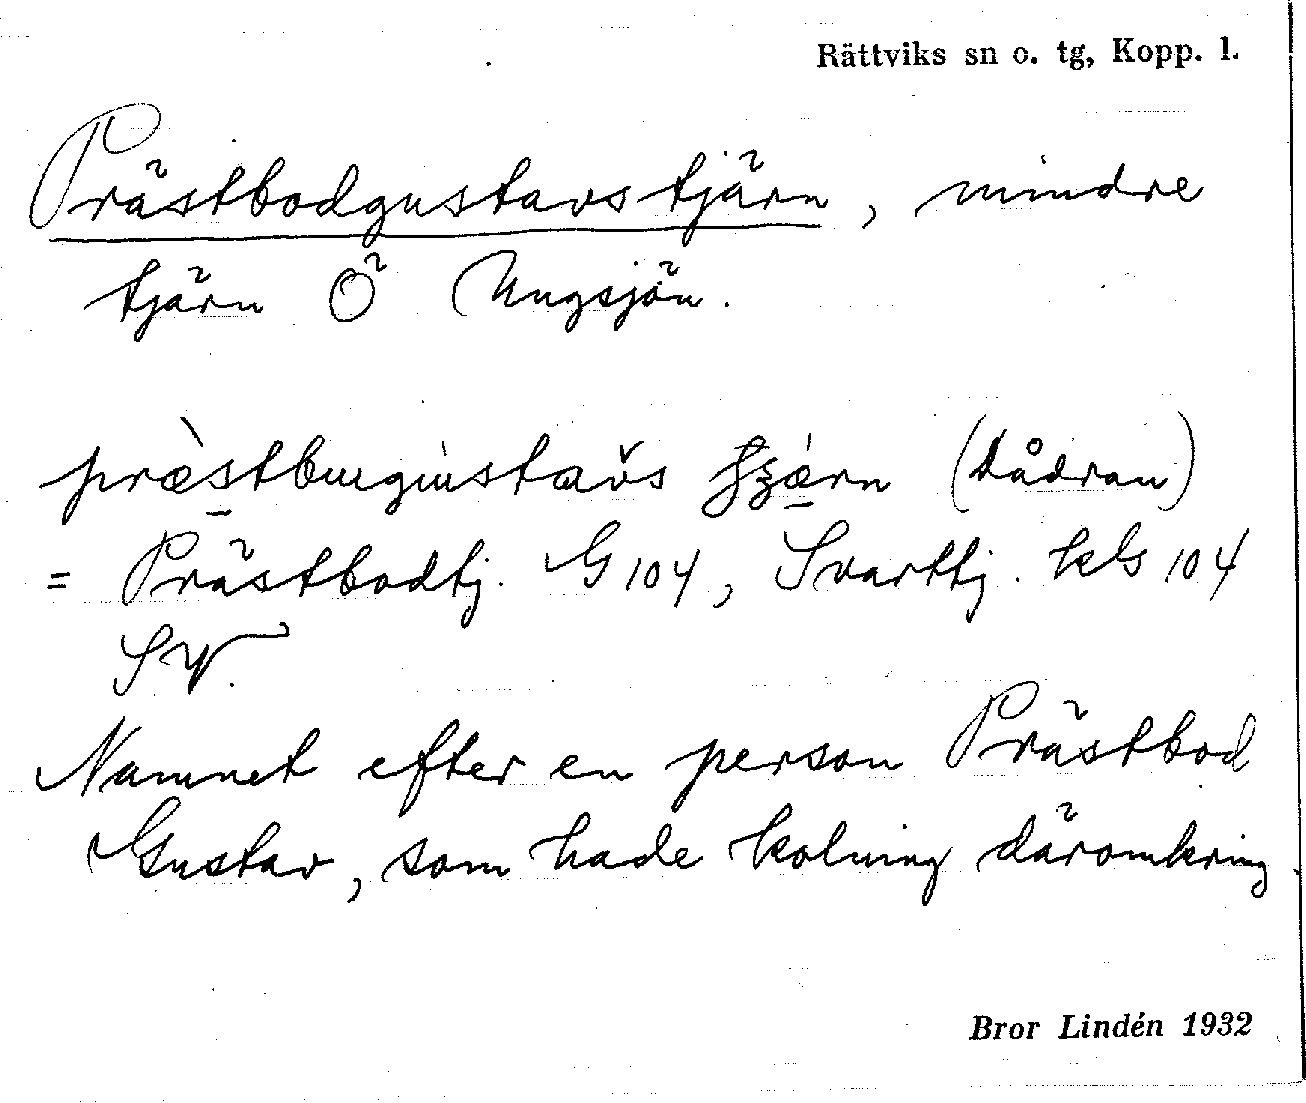 Rättviks sn o. tg, Kopp. l.
Prästbodgustavstjärn, mindre
tjärn Ö Ungsjön.
(Dådran)
= Prästbodtj. G 104, Svarttj. kls 104
SV.
Namnet efter en person Prästbod
Gustav, som hade kolning däromkring.
Bror Lindén 1932